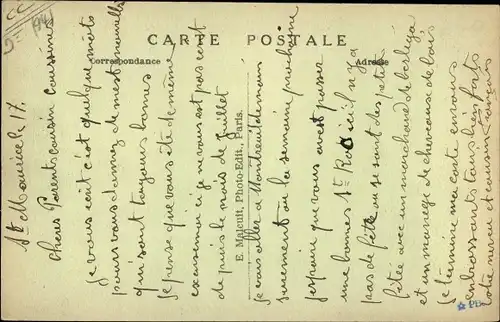 CARTE POSTALE
Correspondance
Adresse
E. Malcuit, Photo-Edit., Paris.
St Maurice le 17.
Chères Parents cousin cousines
Je vous écit c'est quelque mots
pours vous donnez de mest nouvelle
qui sont toujours bonnes
Je pense que vous ète de même
car simoi ci je vous est pas écrit
depuis le mois de Juillet
je vous aller a
surement ou la semaine prochaine
J'espaire que vous avest passer
une bonnes St ici il n'y a
pas de fête ou se sont des petite
fêtes avec un marchand de
et un manège de cheveaux de bois
Je termine ma carte en vous
enbrassants tous bien forts
votre neveu et cousin